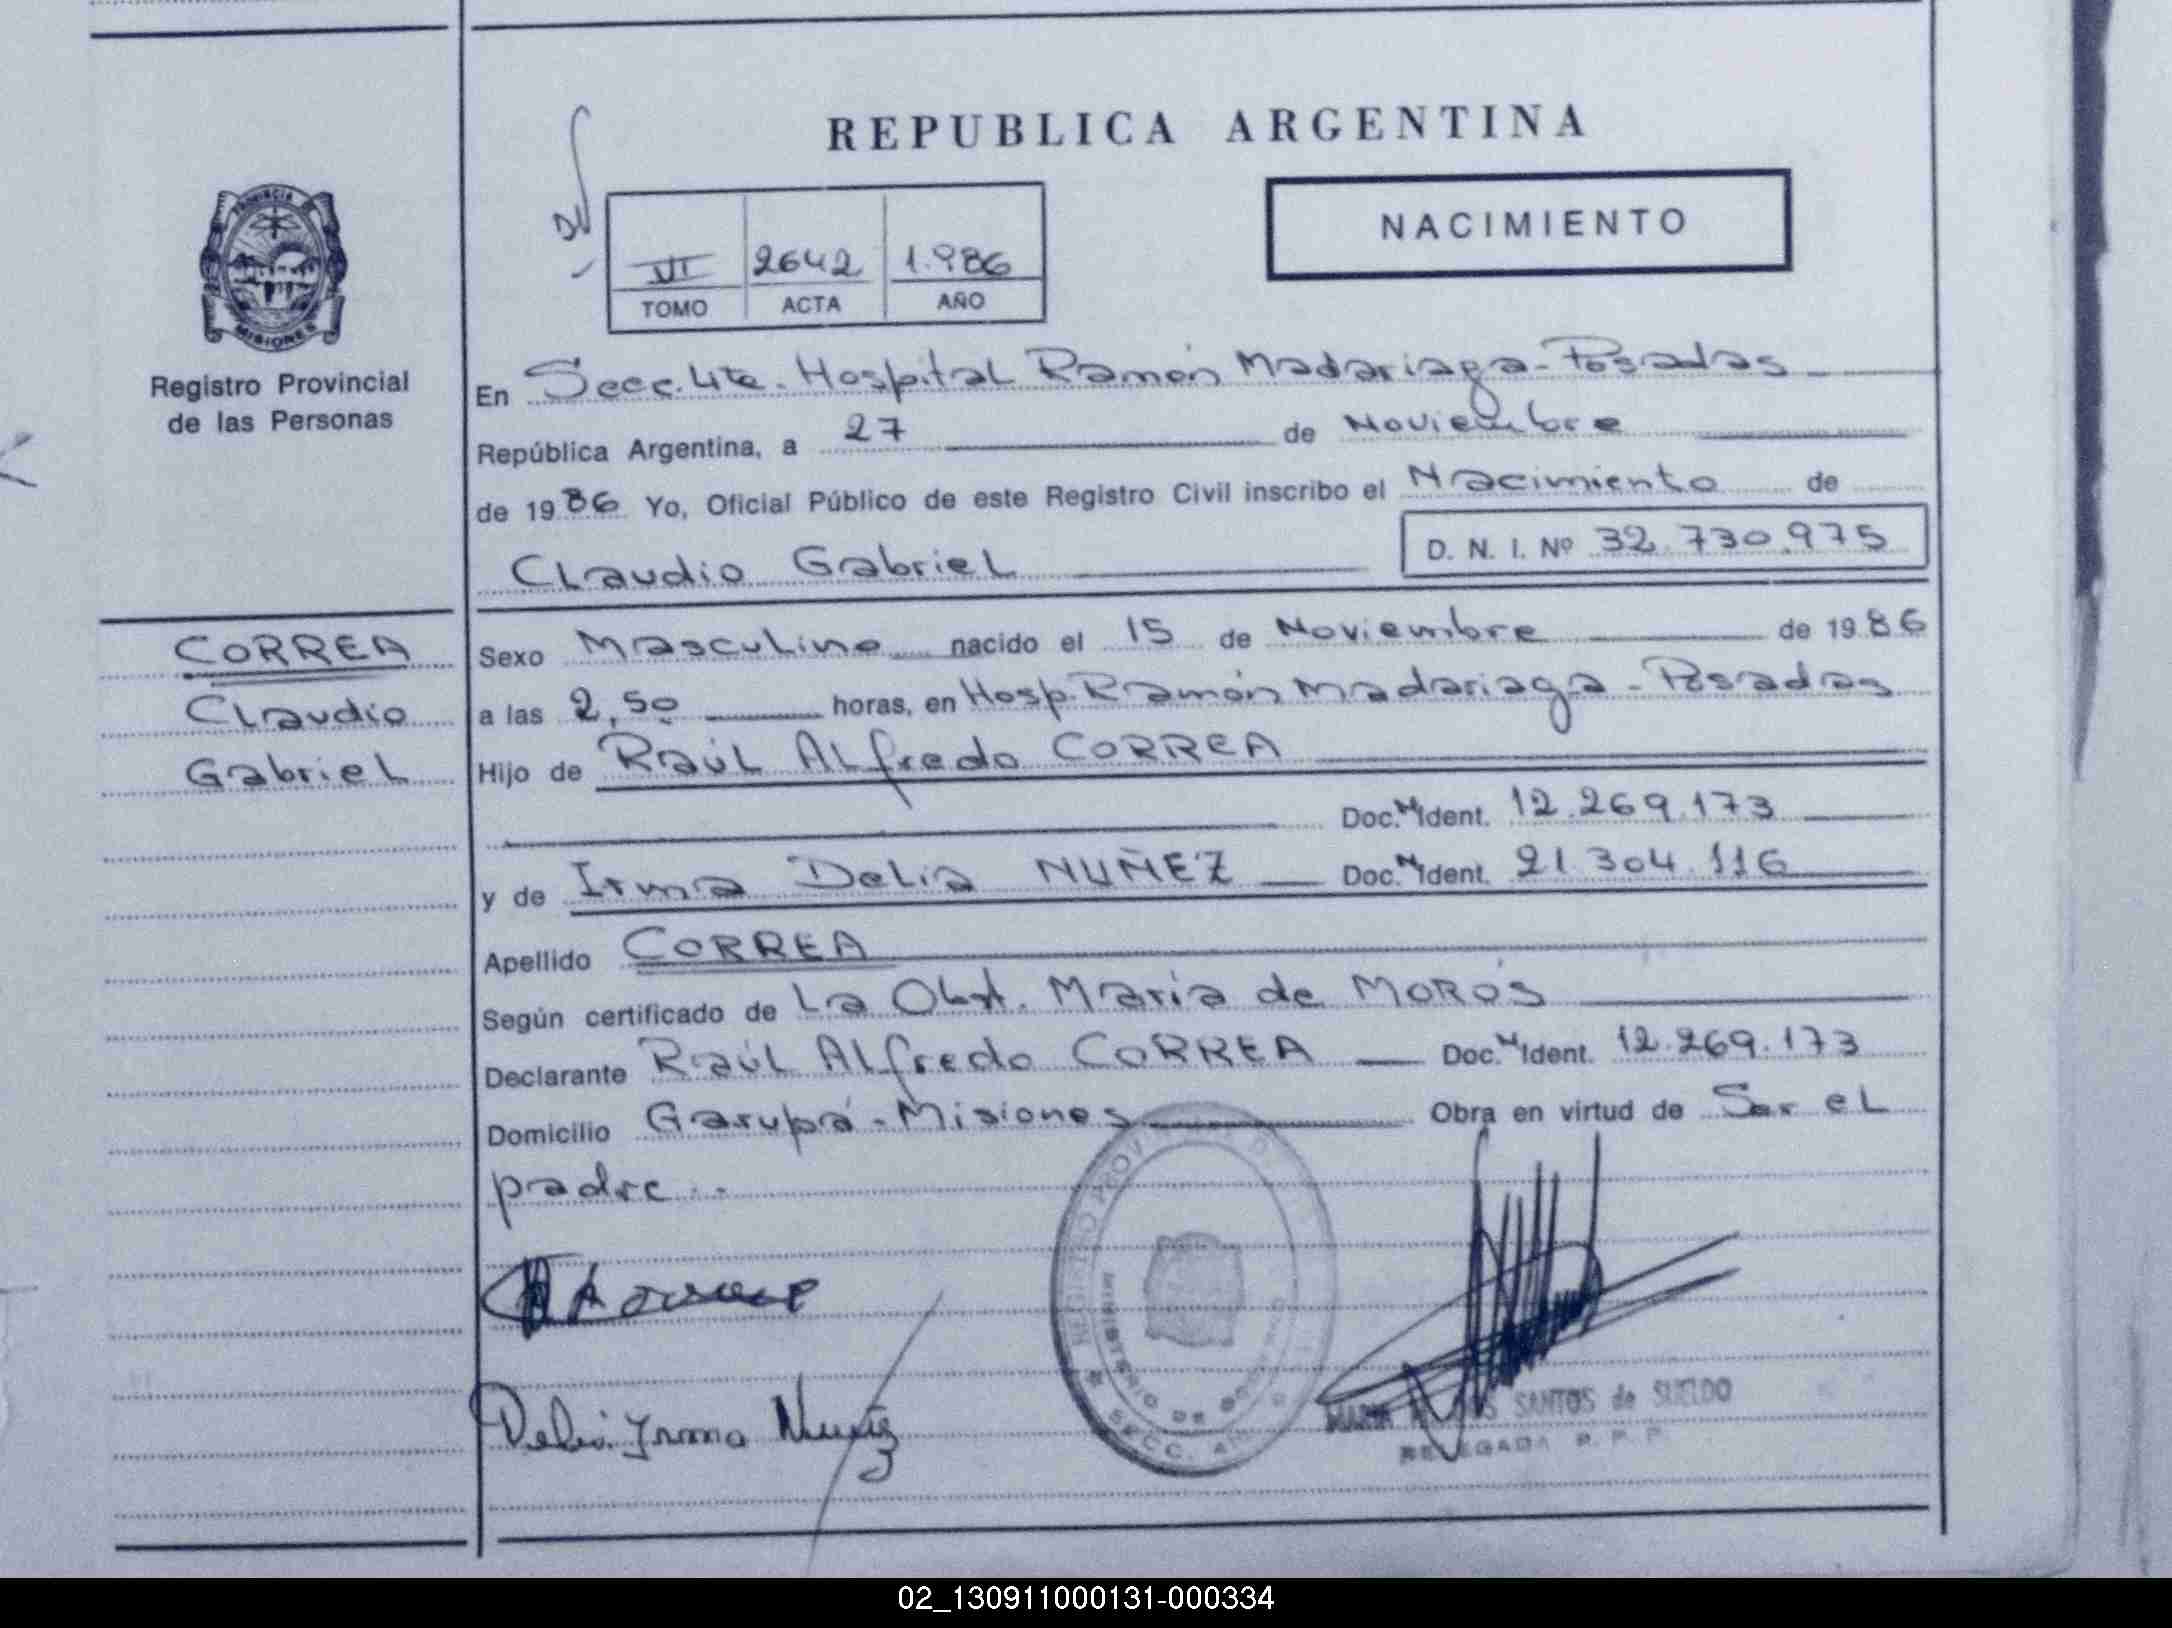 REPUBLICA ARGENTINA
PROVINCIA
MISIONES
Registro Provincial
de las Personas
VI 2642 1.986
TOMO ACTA AÑO
NACIMIENTO
En Secc. 4ta. Hospital Ramón Madariaga - Posadas
República Argentina, a 27 de Noviembre
de 1986 Yo, Oficial Público de este Registro Civil inscribo el Nacimiento de
Claudio Gabriel D. N. I. Nº 32.730.975
CORREA
Claudio
Gabriel
Sexo Masculino nacido el 15 de Noviembre de 1986
a las 2,50 horas, en Hosp. Ramón Madariaga - Posadas
Hijo de Raúl Alfredo CORREA
Doc. N Ident. 12.269.173
y de Irma Delia NUÑEZ Doc. N Ident. 21.304.116
Apellido CORREA
Según certificado de La Obst. María de MOROS
Declarante Raúl Alfredo CORREA Doc. N Ident. 12.269.173
Domicilio Garupá - Misiones Obra en virtud de Ser el
padre..
Delia Irma Nuñez
REGISTRO PROVINCIAL DE
MINISTERIO DE GOBIERNO
SECC.
MARIA SANTOS de SUELDO
DELEGADA R. P. P.
02_130911000131-000334